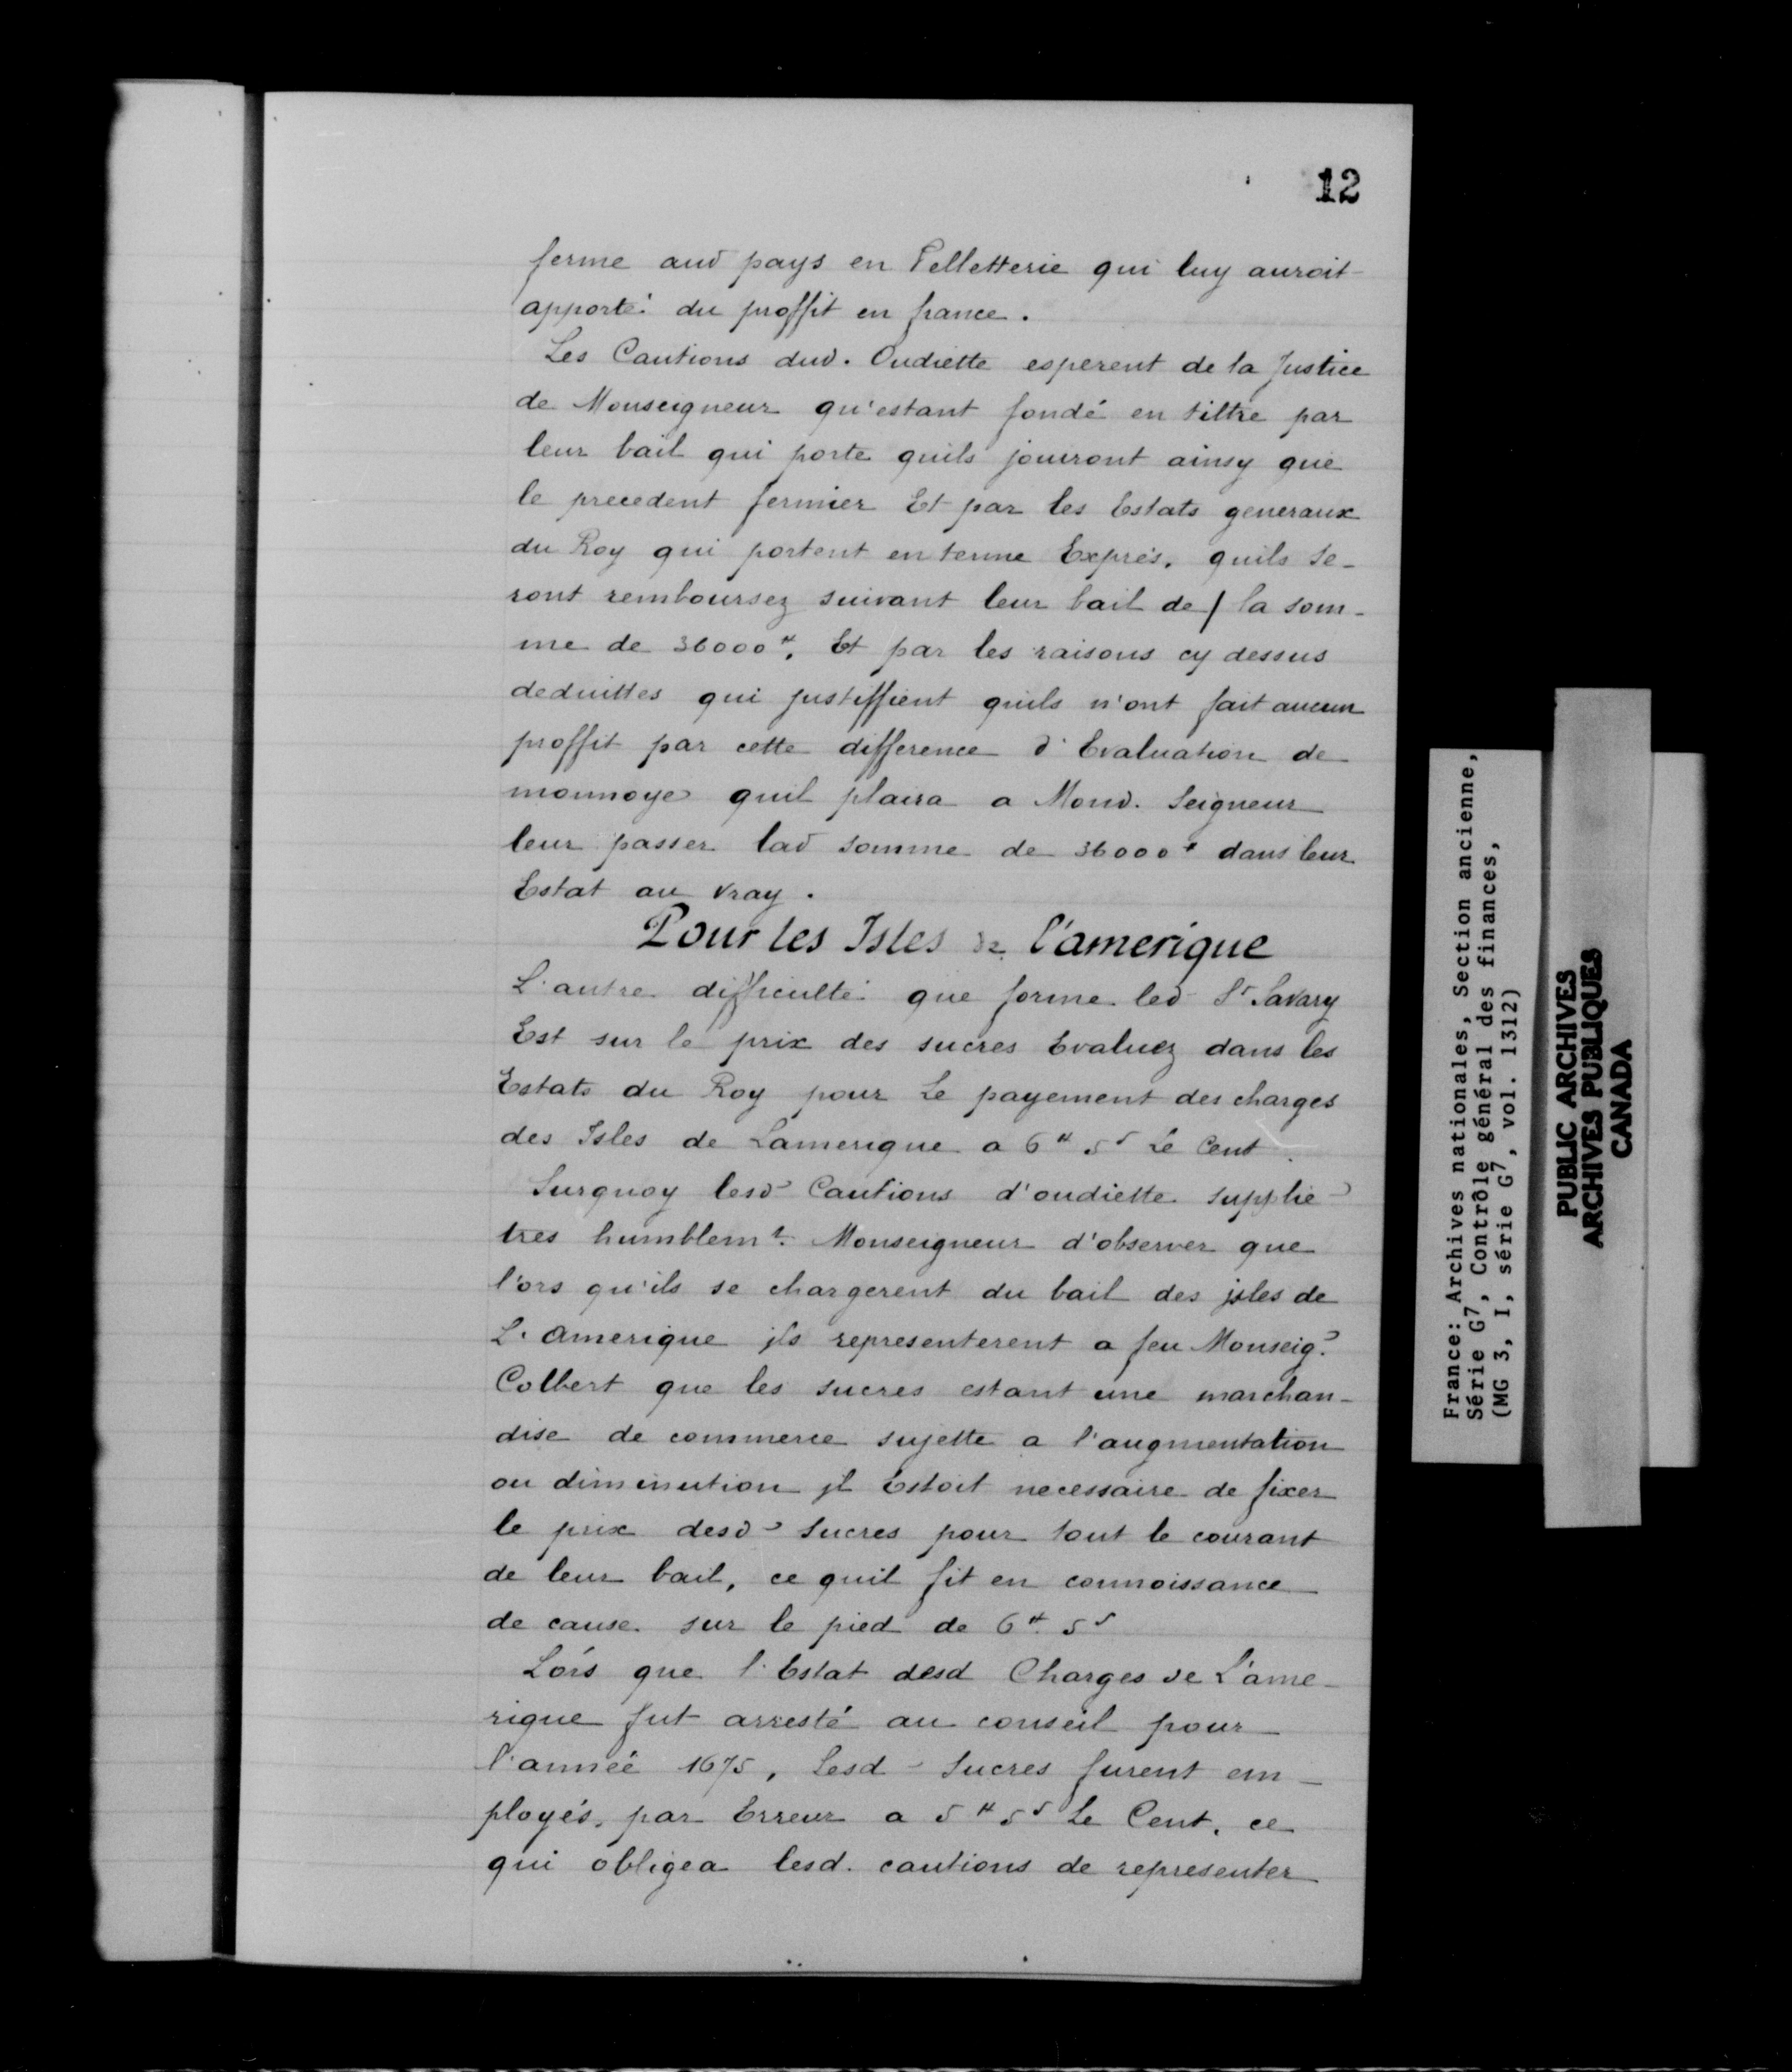 12
ferme aud pays en Pelletterie qui luy auroit
apporté du proffit en france.
Les Cautions dud. Oudiette esperent de la Justice
de Monseigneur qu'estant fondé en tiltre par
leur bail qui porte quils jouiront ainsy que
le precedent fermier Et par les Estats generaux
du Roy qui portent en terme Exprés, quils se-
ront remboursez suivant leur bail de / la som-
me de 36000 ₶, Et par les raisons cy dessus
deduittes qui justiffient quils n'ont fait aucun
proffit par cette difference d'Evaluation de
monnoye quil plaira a Mond. Seigneur
leur passer lad somme de 36000 ₶ dans leur
Estat au vray.
Pour les Isles de l'amerique
L'autre difficulté que forme led Sr. Savary
Est sur le prix des sucres Evaluez dans les
Estats du Roy pour Le payement des charges
des Isles de Lamerique a 6 ₶ 5 s Le Cent.
Surquoy lesd Cautions d'oudiette supplie
tres humblemt. Monseigneur d'observer que
l'ors qu'ils se chargerent du bail des jsles de
L'amerique jls representerent a feu Monseigr.
Colbert que les sucres estant une marchan-
dise de commerce sujette a l'augmentation
ou diminution jl Estoit necessaire de fixer
le prix desd Sucres pour tout le courant
de leur bail, ce quil fit en connoissance
de cause sur le pied de 6 ₶ 5 s
Lors que l'Estat desd Charges de L'ame-
rique fut arresté au conseil pour
l'année 1675, Lesd Sucres furent em-
ployés, par Erreur a 5 ₶ 5 s Le Cent, ce
qui obligea lesd. cautions de representer
France: Archives nationales, Section ancienne,
Série G7, Contrôle général des finances,
(MG 3, I, série G7, vol. 1312)
PUBLIC ARCHIVES
ARCHIVES PUBLIQUES
CANADA